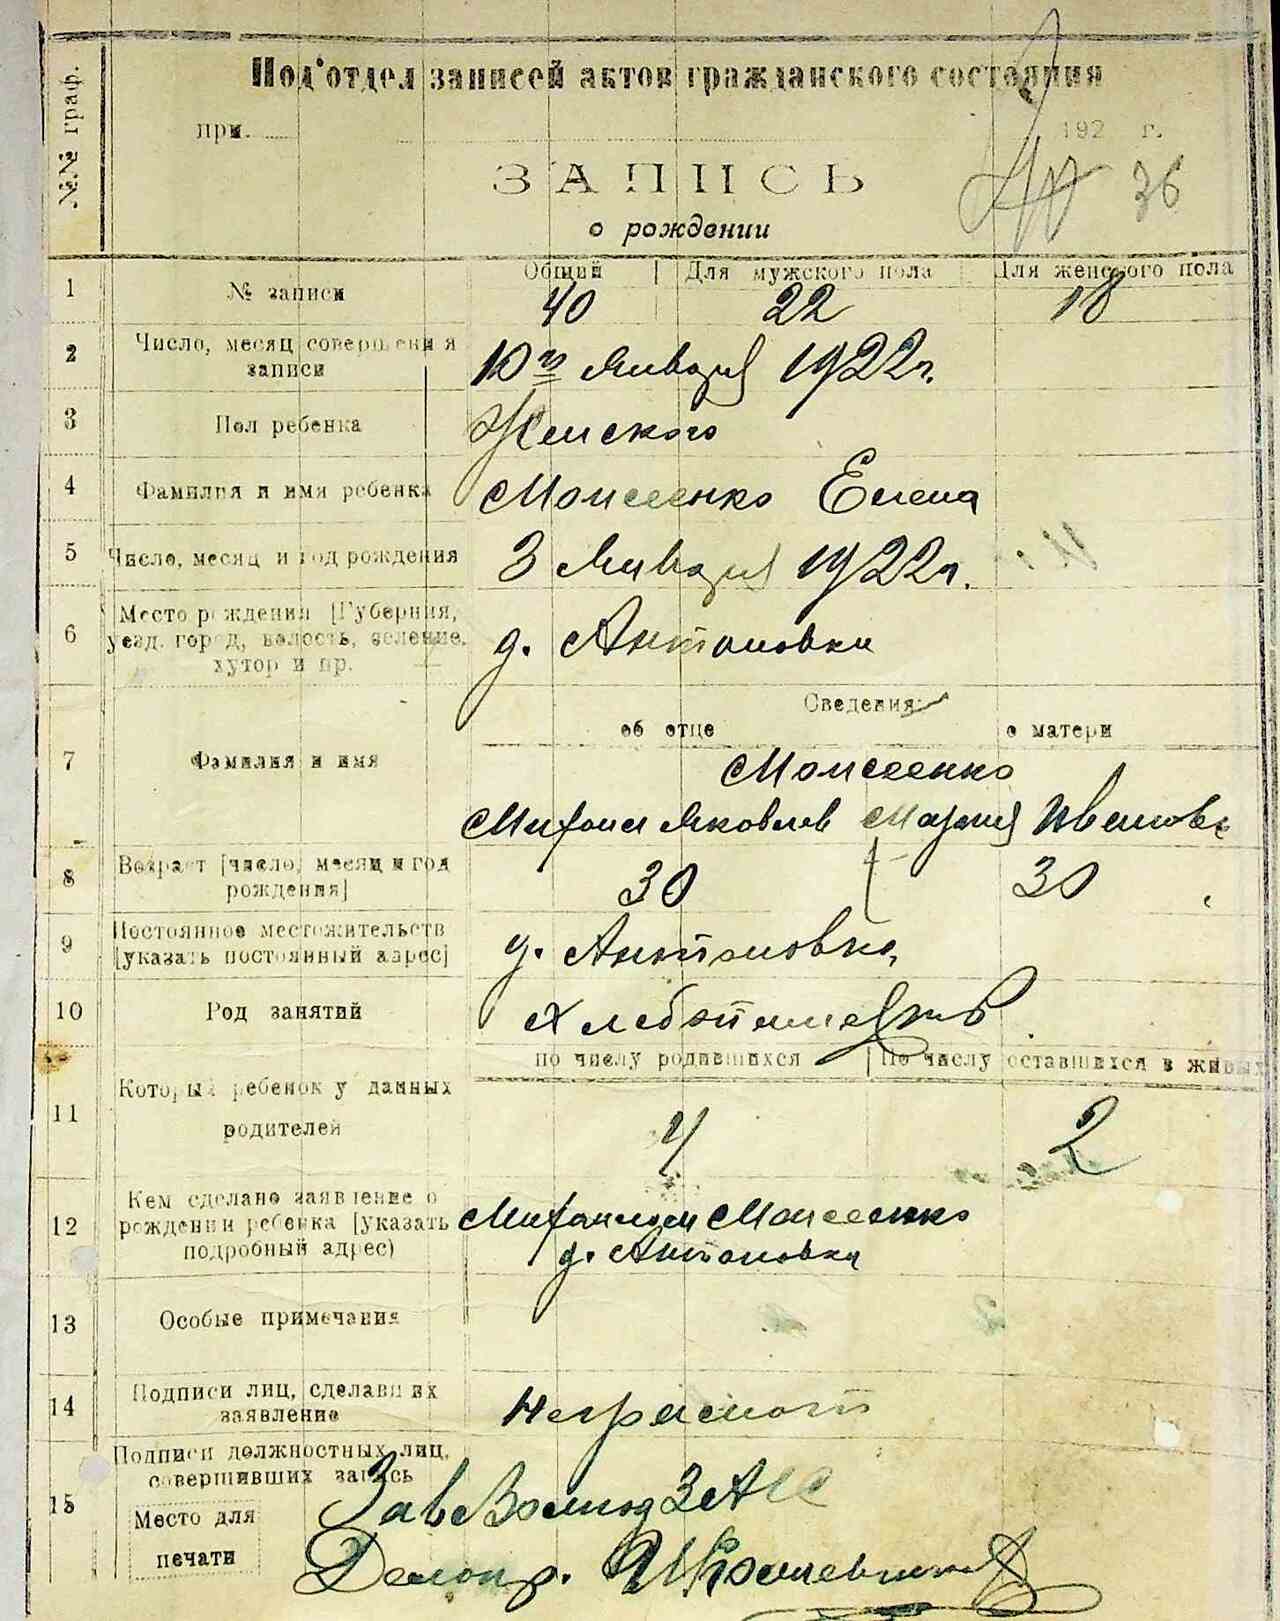 №№ граф.
Под'отдел записей актов гражданского состояния
при. 192 г.
ЗАПИСЬ 36
о рождении
Общий Для мужского пола Для женского пола
1 № записи 40 22 18
2 Число, месяц совершения
записи 10го Января 1922 г.
3 Пол ребенка Женского
4 Фамилия и имя ребенка Моисеенко Елена
5 Число, месяц и год рождения 3 Января 1922 г.
6 Место рождения [Губерния,
уезд, город, волость, селение,
хутор и пр. д. Антоновки
Сведения:
об отце о матери
7 Фамилия и имя Моисеенко
Михаил Яковлев Мария Иванов
8 Возраст [число, месяц и год
рождения] 30 30
9 Постоянное местожительств
[указать постоянный адрес] д. Антоновка,
10 Род занятий Хлебопашество
по числу родившихся По числу оставшихся в живых
11 Который ребенок у данных
родителей 4 2
12 Кем сделано заявление о
рождении ребенка [указать
подробный адрес) Михаилом Моисеенко
д. Антоновки
13 Особые примечания
14 Подписи лиц, сделавших
заявление Неграмот
15 Подписи должностных лиц,
совершивших запись
Место для
печати
Делопр.